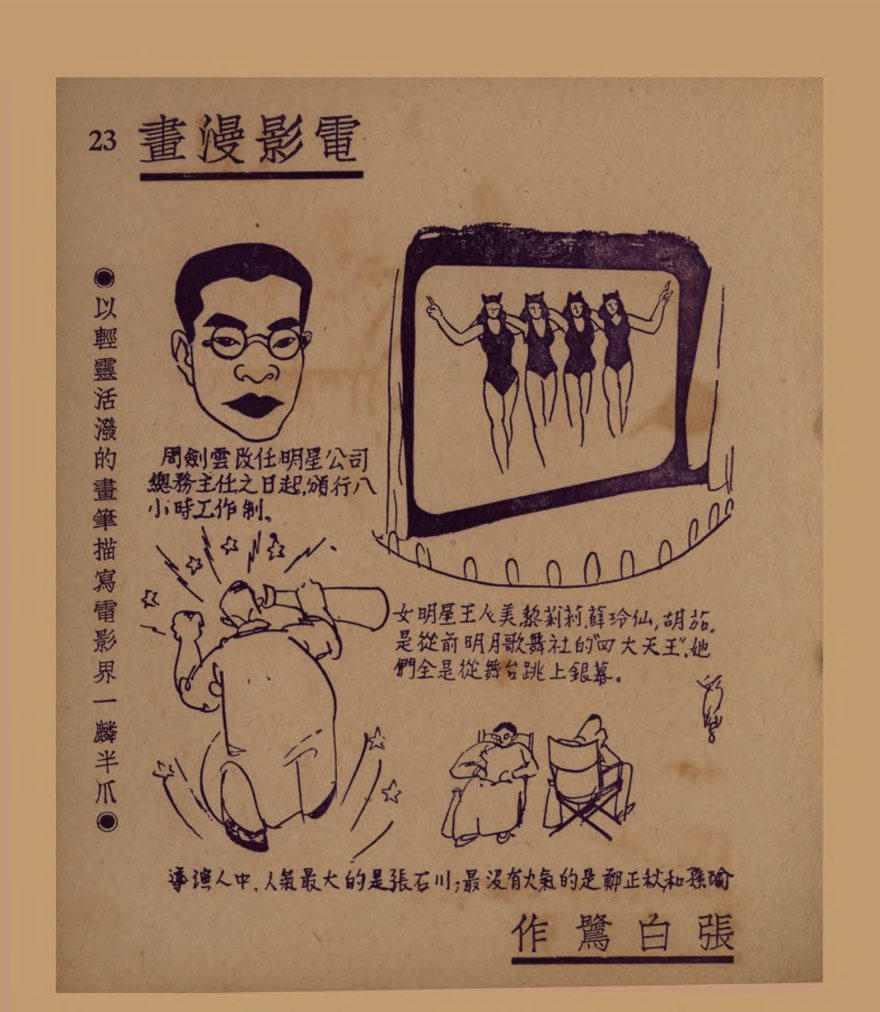 電影漫畫
23
◉以輕靈活潑的畫筆描寫電影界一麟半爪◉
周劍雲改任明星公司
總務主任之日起,頒行八
小時工作制。
女明星王人美黎莉莉,薛玲仙,胡茄。
是從前明月歌舞社的"四大天王",她
們全是從舞台跳上銀幕。
導演人中,火氣最大的是張石川;最沒有火氣的是鄭正秋和孫瑜
張白鷺作